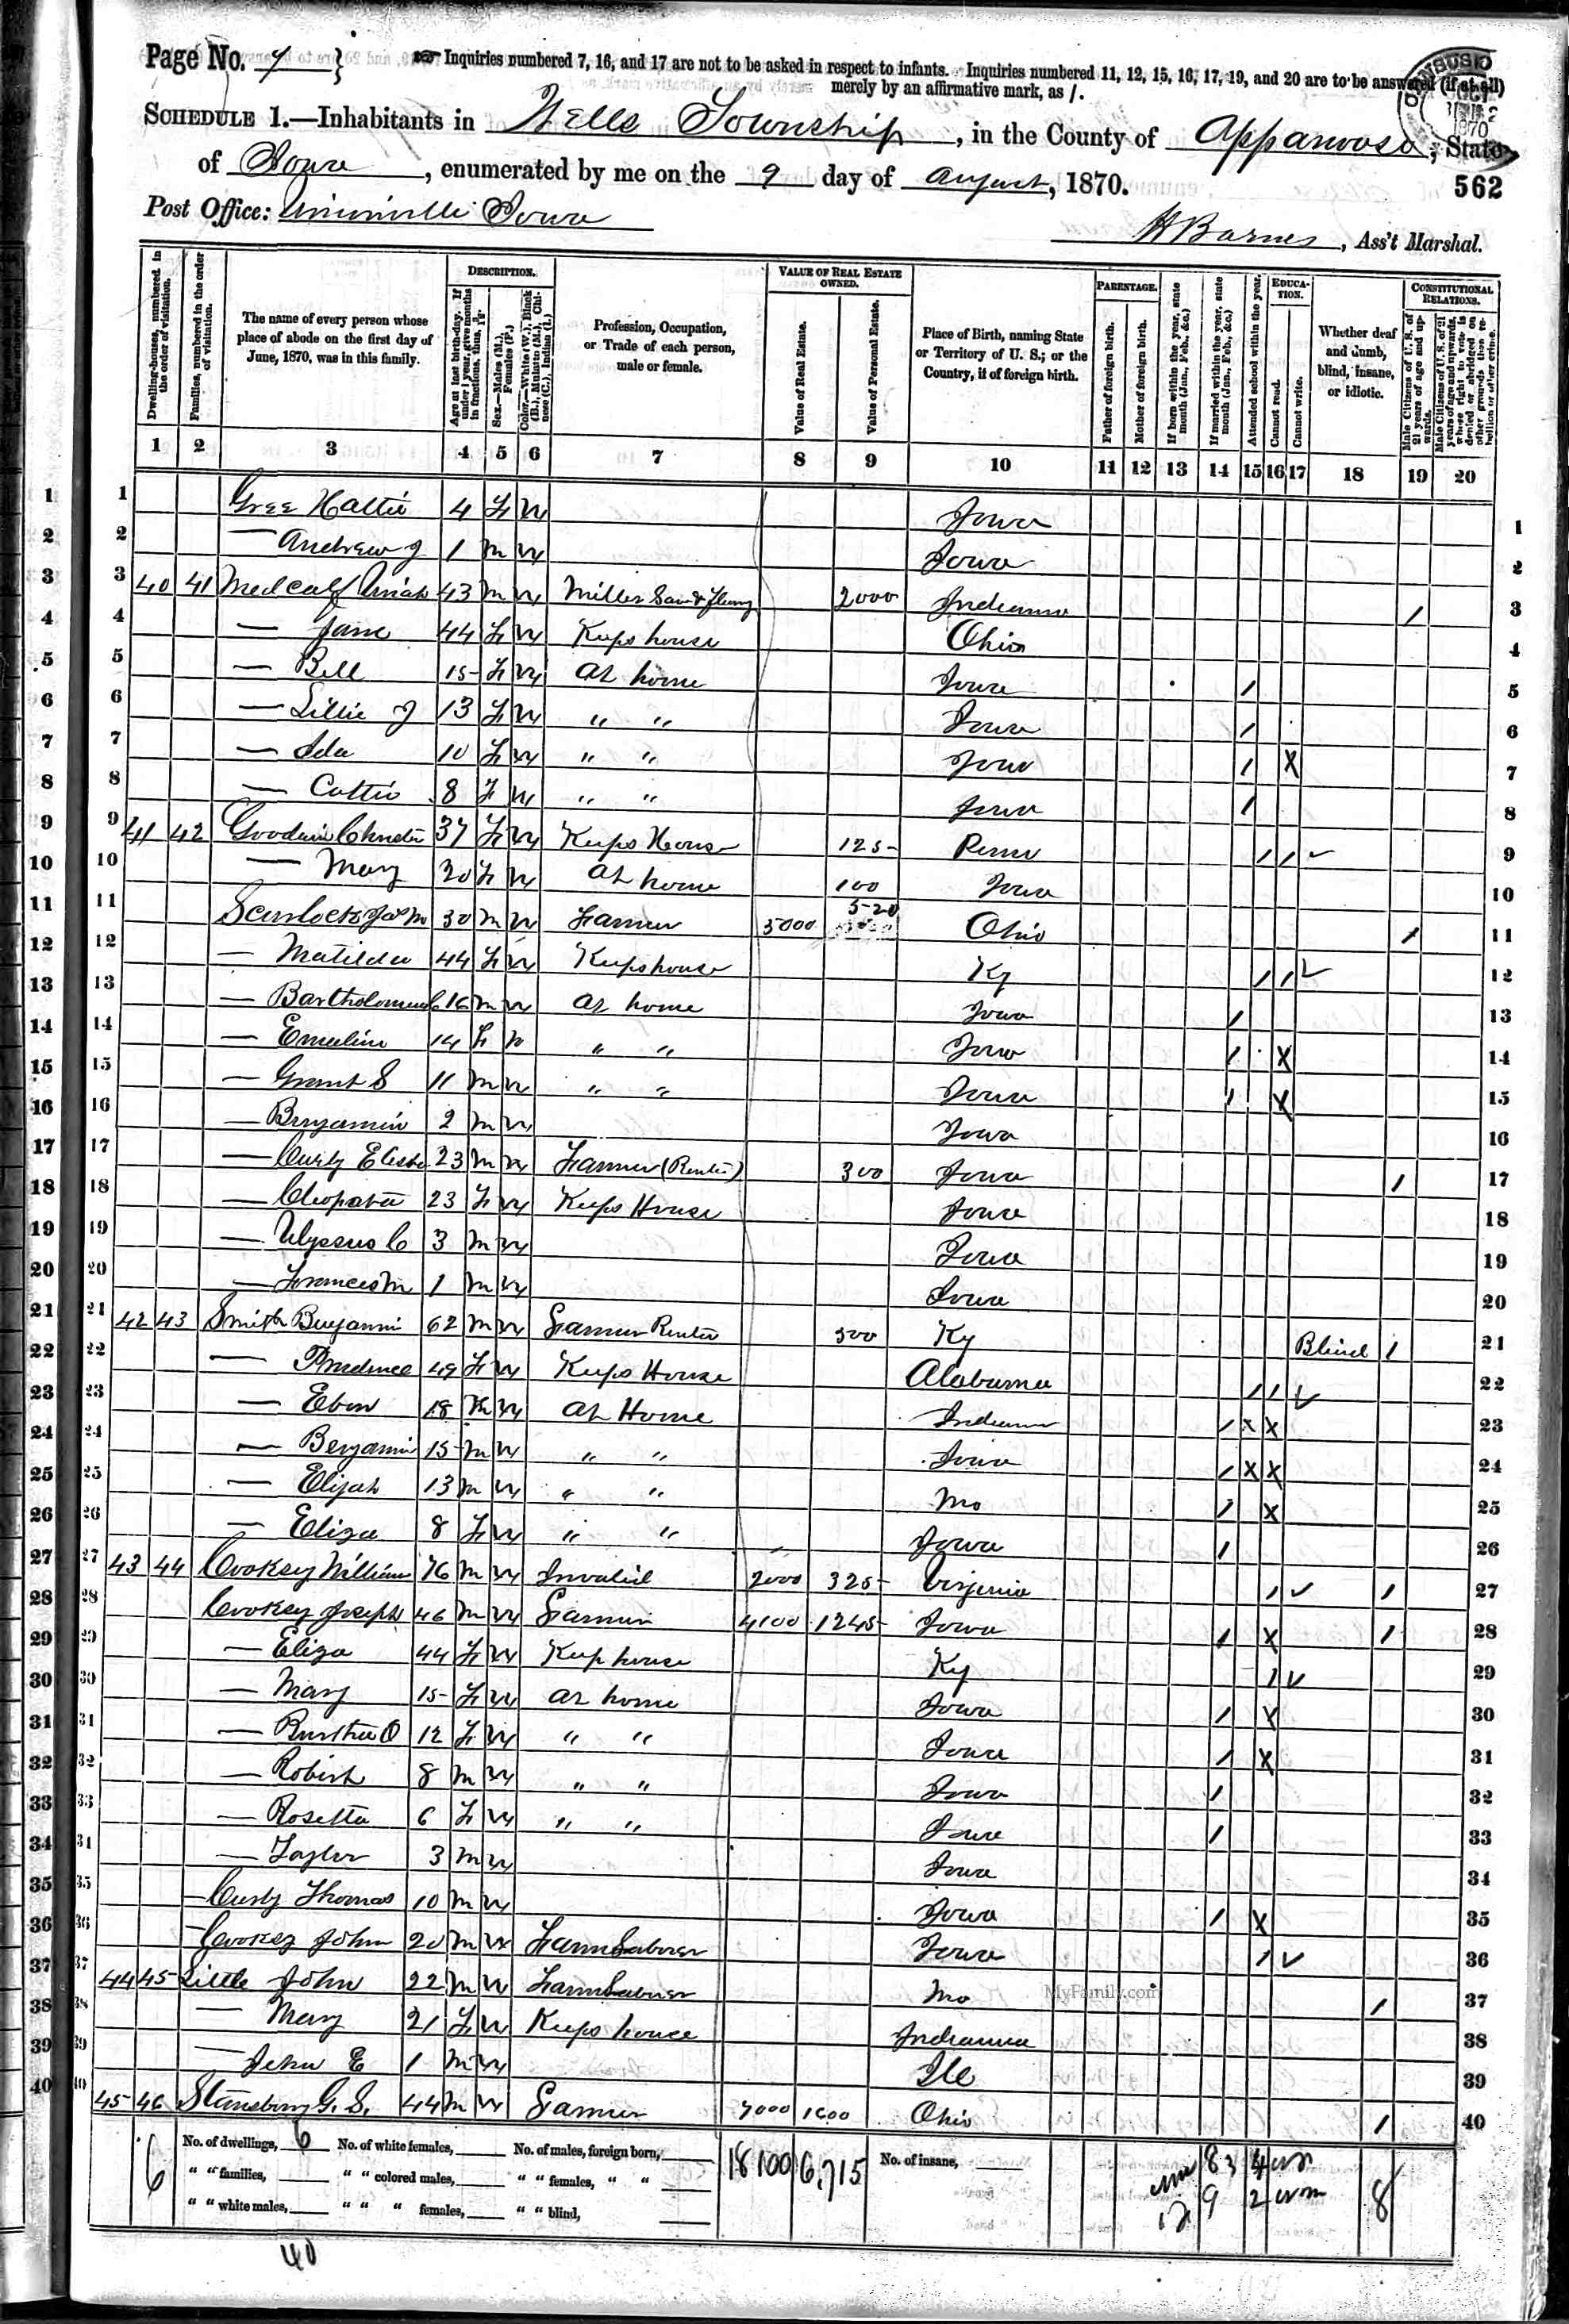 Page No. 7 } ☞ Inquiries numbered 7, 16, and 17 are not to be asked in respect to infants. Inquiries numbered 11, 12, 15, 16, 17, 19, and 20 are to be answered (if at all)
merely by an affirmative mark, as /.
SCHEDULE 1.—Inhabitants in Wells Township, in the County of Appanoose, State
of Iowa, enumerated by me on the 9 day of August, 1870.
562
Post Office: Unionville Iowa
H Barnes, Ass't Marshal.
Dwelling-houses, numbered in the order of visitation.
Families, numbered in the order of visitation.
The name of every person whose place of abode on the first day of June, 1870, was in this family.
DESCRIPTION.
Age at last birth-day. If under 1 year, give months in fractions, thus, 3/12
Sex.—Males (M.), Females (F.)
Color.—White (W.), Black (B.), Mulatto (M.), Chinese (C.), Indian (I.)
Profession, Occupation, or Trade of each person, male or female.
VALUE OF REAL ESTATE OWNED.
Value of Real Estate.
Value of Personal Estate.
Place of Birth, naming State or Territory of U. S.; or the Country, if of foreign birth.
PARENTAGE.
Father of foreign birth.
Mother of foreign birth.
If born within the year, state month (Jan., Feb., &c.)
If married within the year, state month (Jan., Feb., &c.)
Attended school within the year.
EDUCATION.
Cannot read.
Cannot write.
Whether deaf and dumb, blind, insane, or idiotic.
CONSTITUTIONAL RELATIONS.
Male Citizens of U. S. of 21 years of age and upwards.
Male Citizens of U. S. of 21 years of age and upwards, whose right to vote is denied or abridged on other grounds than rebellion or other crime.
1 2 3 4 5 6 7 8 9 10 11 12 13 14 15 16 17 18 19 20
1 1 Gree Hattie 4 F W Iowa 1
2 2 — Andrew J 1 M W Iowa 2
3 3 40 41 Medcalf Uriah 43 M W Miller Saw & 2000 Indiana / 3
4 4 — Jane 44 F W Keeps house Ohio 4
5 5 — Bell 15 F W At home Iowa / 5
6 6 — Lillie J 13 F W " " Iowa / 6
7 7 — Ida 10 F W " " Iow / X 7
8 8 — Cattie 8 F W " " Iowa / 8
9 9 41 42 Goodwin 37 F W Keeps House 125 Penn / / ✓ 9
10 10 — Mary 20 F W At home 100 Iowa 10
11 11 Scurlock Jas M 30 M W Farmer 5000 520 Ohio / 11
12 12 — Matilda 44 F W Keeps house Ky / / ✓ 12
13 13 — Bartholomew 16 M W At home Iowa / 13
14 14 — Emeline 14 F W " " Iowa / X 14
15 15 — Grant S 11 M W " " Iowa / X 15
16 16 — Benjamin 2 M W Iowa 16
17 17 — Curly 23 M W Farmer (Renter) 300 Iowa / 17
18 18 — Cleopatra 23 F W Keeps House Iowa 18
19 19 — Ulyssus C 3 M W Iowa 19
20 20 — Frances M 1 M W Iowa 20
21 21 42 43 Smith Benjamin 62 M W Farmer Renter 300 Ky Blind / 21
22 22 — Prudence 49 F W Keeps House Alabama / / ✓ 22
23 23 — Eben 18 M W At Home Indiana / X X 23
24 24 — Benjamin 15 M W " " Iowa / X X 24
25 25 — Elijah 13 M W " " Mo / X 25
26 26 — Eliza 8 F W " " Iowa / 26
27 27 43 44 Cooksey William 76 M W Invalid 2000 325 Virginia / ✓ / 27
28 28 Cooksey Joseph 46 M W Farmer 4100 1245 Iowa / X / 28
29 29 — Eliza 44 F W Keep house Ky / ✓ 29
30 30 — Mary 15 F W At home Iowa / X 30
31 31 — 12 F W " " Iowa / X 31
32 32 — Robert 8 M W " " Iowa / 32
33 33 — Rosetta 6 F W " " Iowa / 33
34 34 — Taylor 3 M W Iowa 34
35 35 — Curly Thomas 10 M W Iowa / X 35
36 36 — Cooksey John 20 M W Farm Laborer Iowa / ✓ 36
37 37 44 45 Little John 22 M W Farm Laborer Mo / 37
MyFamily.com
38 38 — Mary 21 F W Keeps house Indianna 38
39 39 — John E 1 M W Ill 39
40 40 45 46 Stansberry G. S. 44 M W Farmer 7000 1600 Ohio / 40
6 No. of dwellings, 6 No. of white females, No. of males, foreign born, 18100 6,715 No. of insane, 8 3 4 8
" " families, " " colored males, " " females, " "
" " white males, " " " females, " " blind, 12 9 2
40